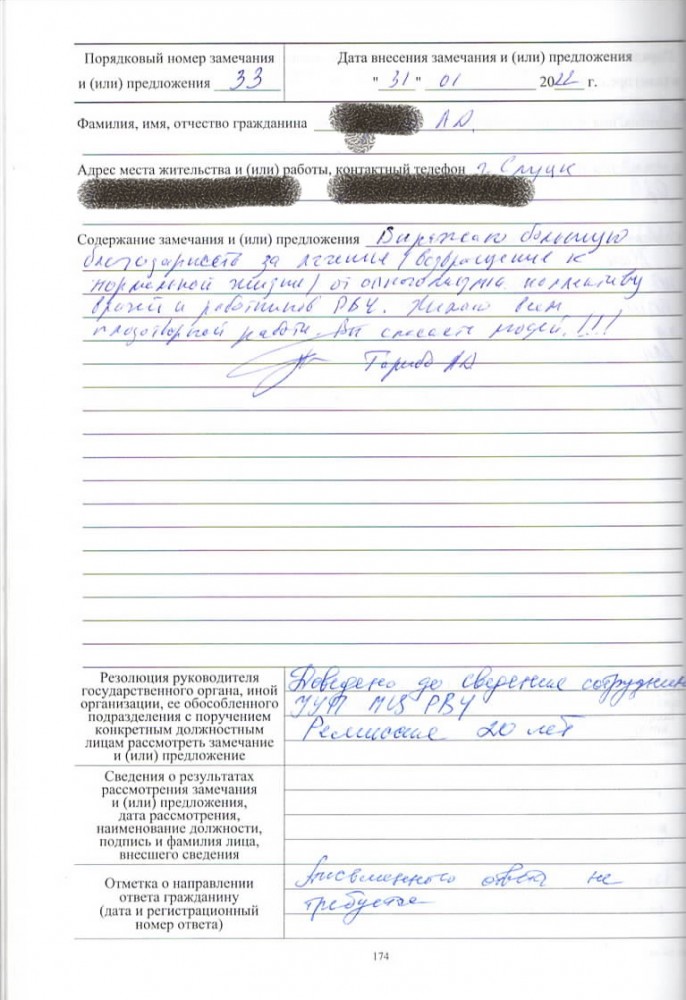 Порядковый номер замечания
и (или) предложения 33
Дата внесения замечания и (или) предложения
"31" 01 2022 г.
Фамилия, имя, отчество гражданина
Адрес места жительства и (или) работы, контактный телефон г. Слуцк
Содержание замечания и (или) предложения Выражаю большую
благодарность за лечение (возвращение к
нормальной жизни) от коллективу
врачей и работников РВЧ. Желаю всем
плодотворной работы. Вы спасаете людей!!!
Резолюция руководителя
государственного органа, иной
организации, ее обособленного
подразделения с поручением
конкретным должностным
лицам рассмотреть замечание
и (или) предложение
Доведено до сведения
МЦ РВЧ
Ремиссия 20 лет
Сведения о результатах
рассмотрения замечания
и (или) предложения,
дата рассмотрения,
наименование должности,
подпись и фамилия лица,
внесшего сведения
Отметка о направлении
ответа гражданину
(дата и регистрационный
номер ответа)
Письменного ответа не
требуется
174